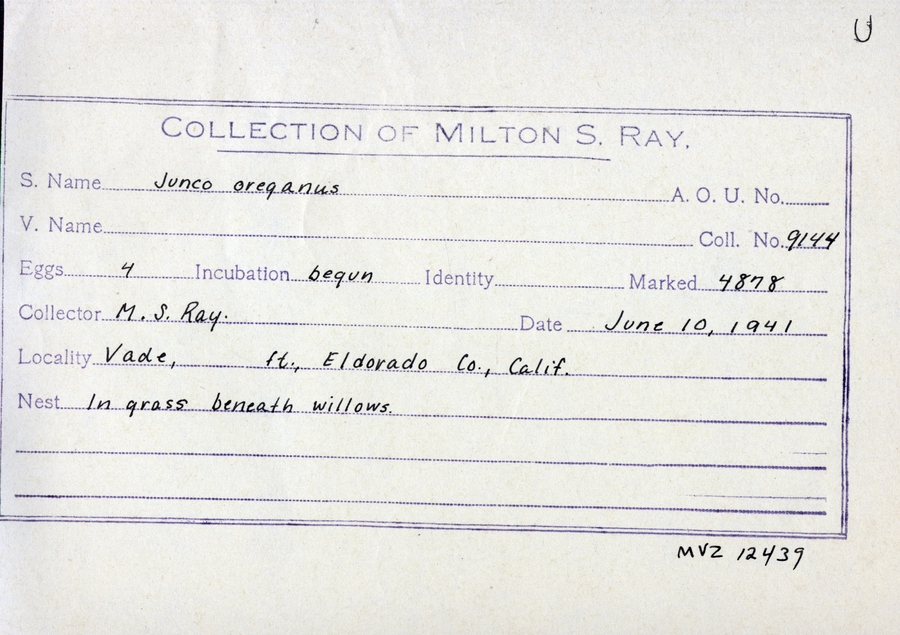 U
COLLECTION OF MILTON S. RAY.
S. Name Junco oreganus A. O. U. No.
V. Name Coll. No. 9144
Eggs 4 Incubation begun Identity Marked 4878
Collector M. S. Ray. Date June 10, 1941
Locality Vade, ft., Eldorado Co., Calif.
Nest In grass beneath willows.
MVZ 12439